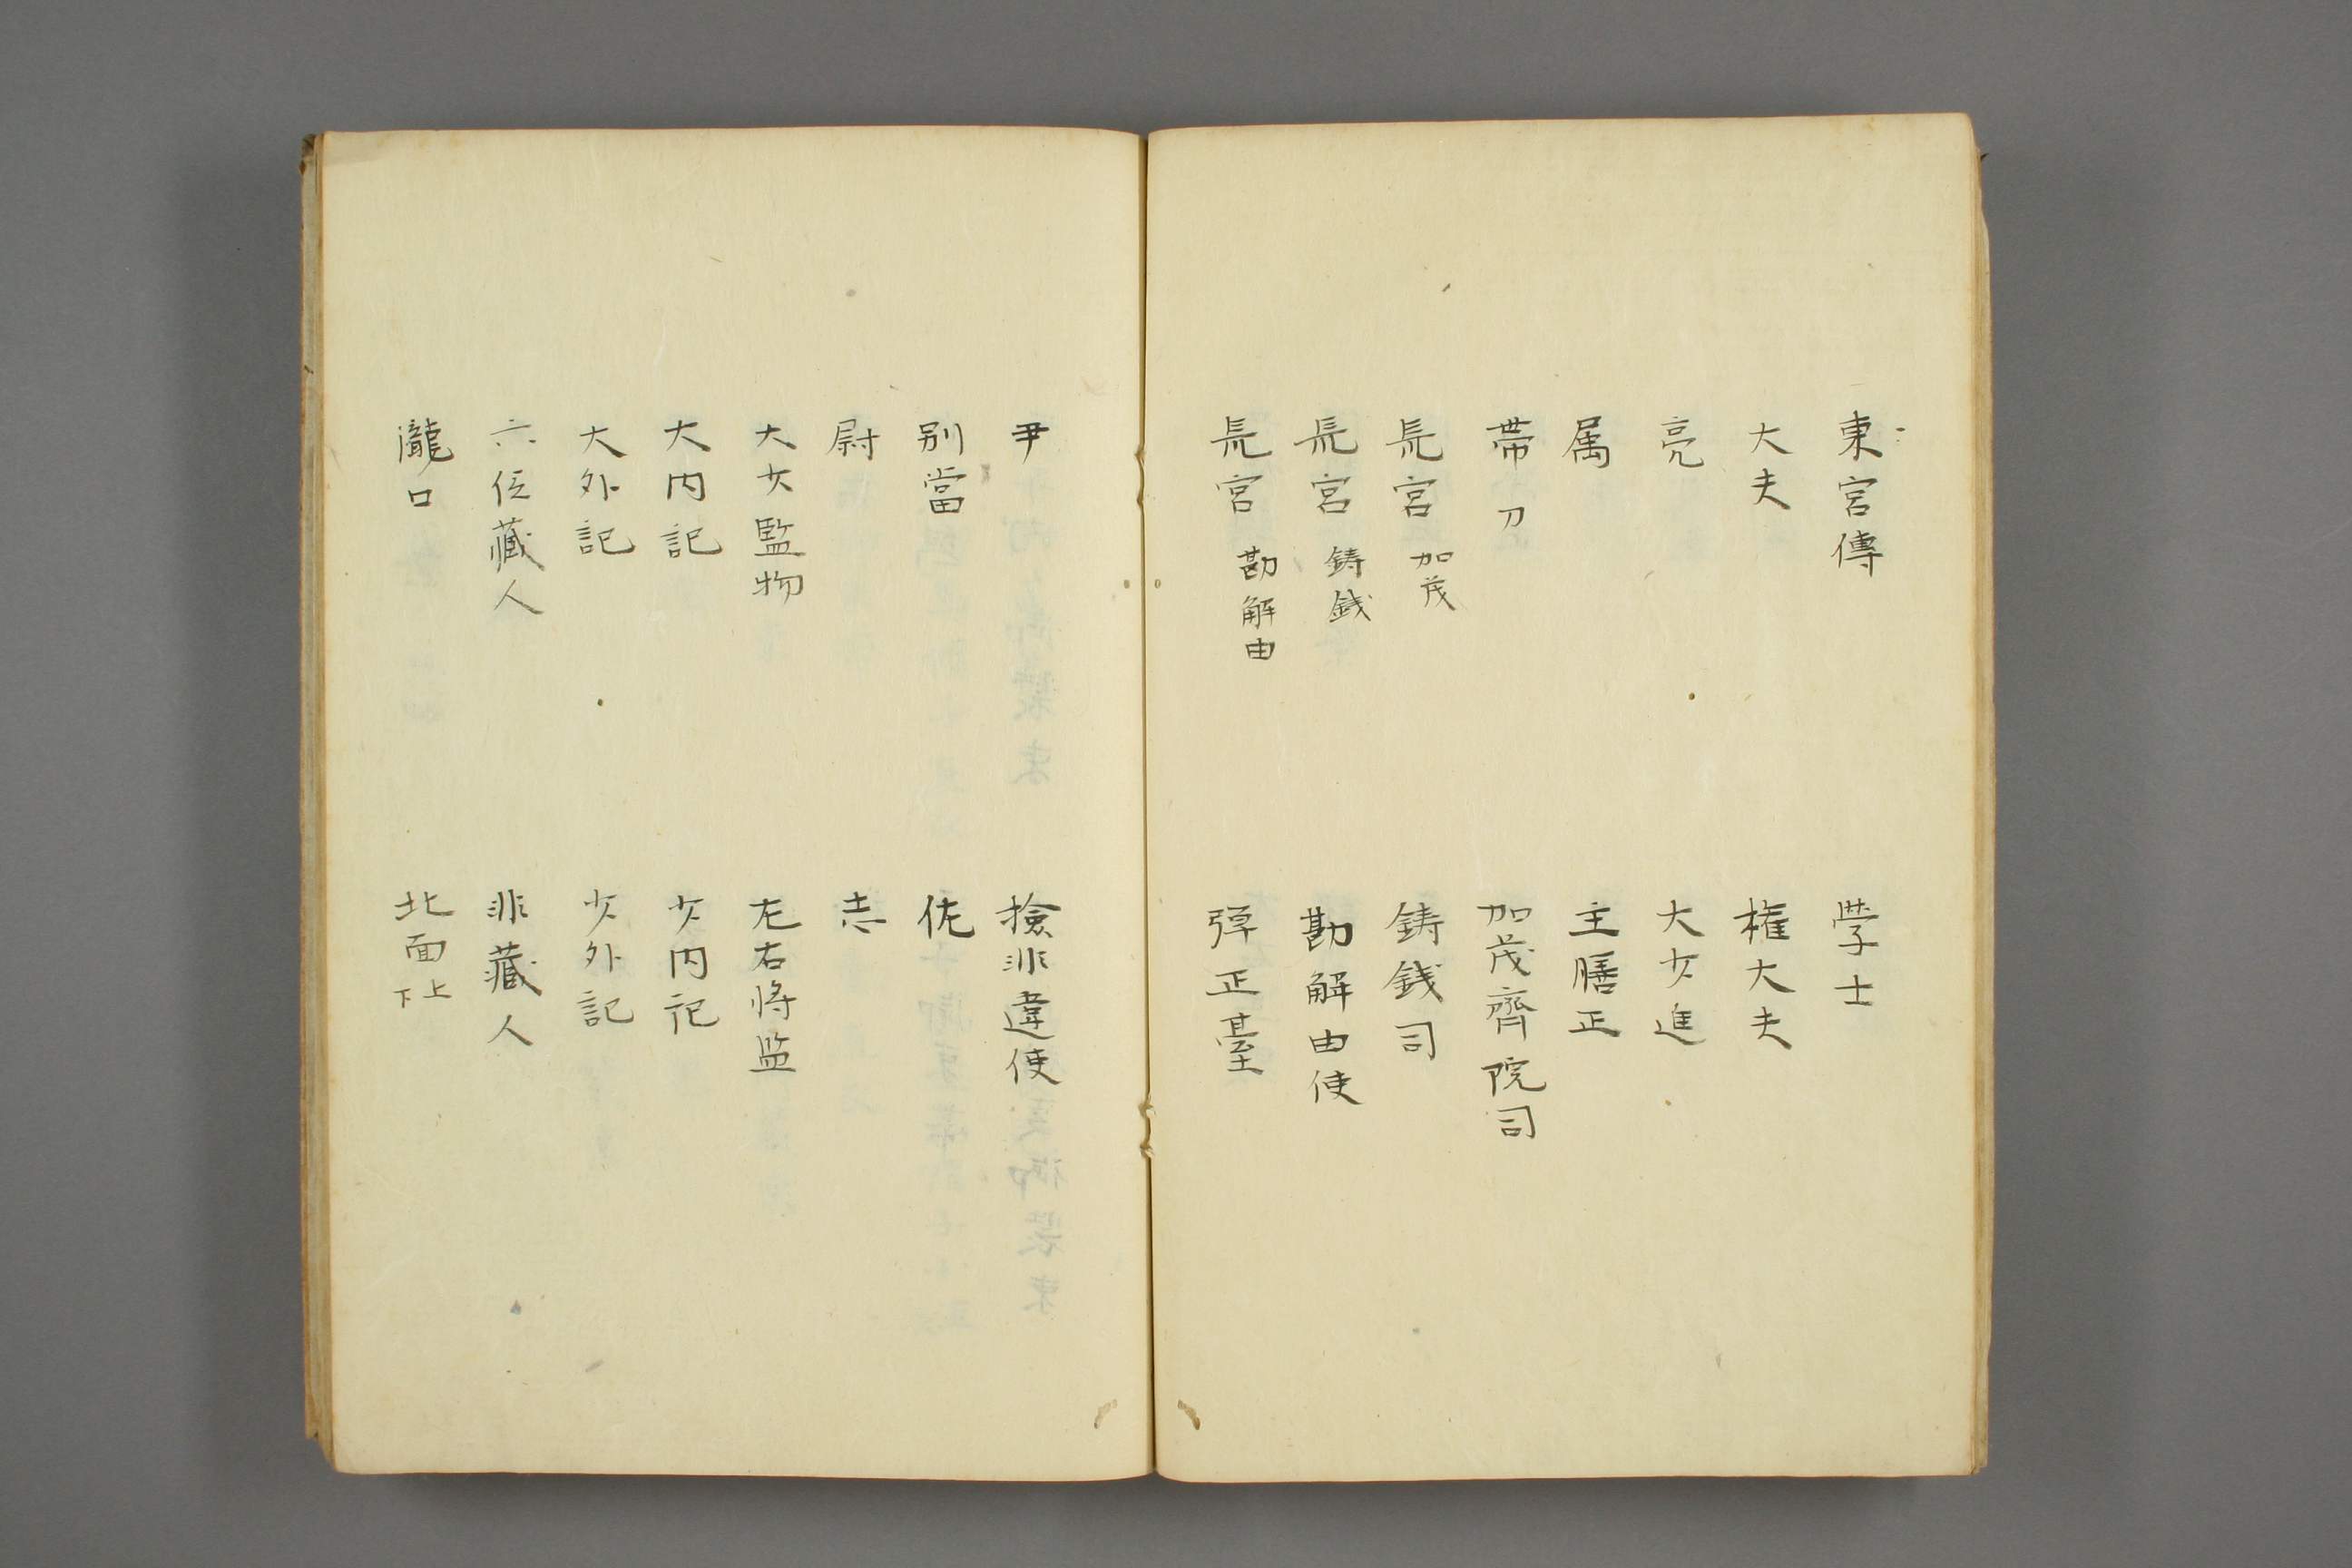 東宮傳　學士
大夫　権大夫
亮　大少進
属　主膳正
帯刀　加茂齊院司
長官 加茂　鋳銭司
長官 鋳銭　勘解由使
長官 勘解由　弾正臺
尹　撿非違使
別當　佐
尉　志
大少監物　左右将監
大内記　少内記
大外記　少外記
六位藏人　非藏人
瀧口　北面上下